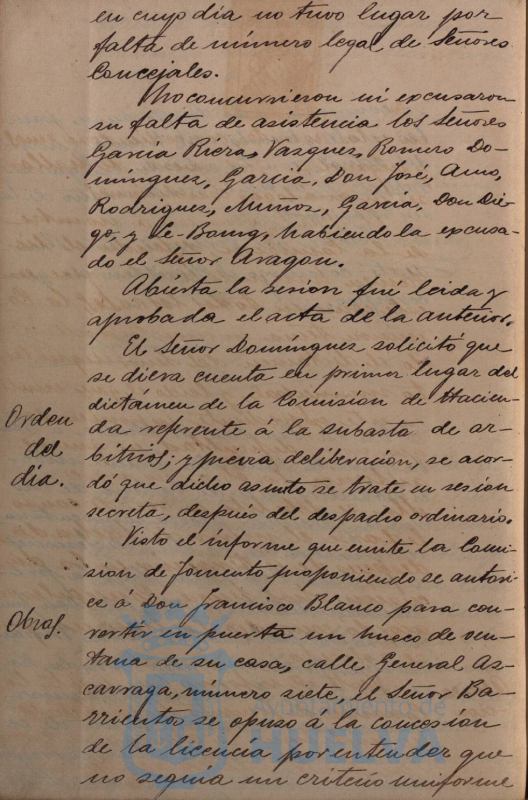 en cuyo día no tuvo lugar por
falta de número legal de Señores
Concejales.
No concurrieron ni excusaron
su falta de asistencia los Señores
García Riera, Vazquez, Romero Do-
mínguez, García, Don José, Amo,
Rodríguez, Muñoz, García, Don Die-
go, y Le-Bourg, habiendola excusa-
do el Señor Aragon.
Abierta la sesion fué leida y
aprobada el acta de la anterior.
El Señor Domínguez solicitó que
se diera cuenta en primer lugar del
dictámen de la Comisión de Hacien-
da referente á la subasta de ar-
bitrios; y previa deliberación, se acor-
dó que dicho asunto se trate en sesión
secreta, después del despacho ordinario.
Orden
del
día.
Visto el informe que emite la Comi-
sion de fomento proponiendo se autori-
ce á Don Francisco Blanco para con-
vertir en puerta un hueco de ven-
tana de su casa, calle General Az-
carraga, número siete, el Señor Ba-
rrientos se opuso á la concesión
de la licencia por entender que
no seguia un criterio uniforme
Obras.
Ayuntamiento de
HUELVA